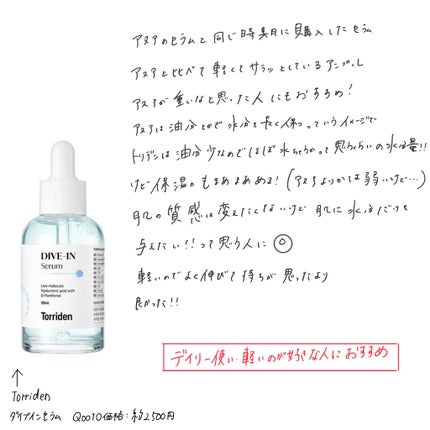 アヌアのセラムと同じ時期に購入したセラム
アヌアと比べて軽くてサラッとしているアンプル
アヌアが重いなと思った人にもおすすめ!
アヌアは油分とかで水分を長く保つっていうイメージで
トリデンは油分少なめでほぼ水ちゃうかって思うくらいの水分量!!
けど保湿力もまあまあある!(アヌアよりかは弱いけど…)
肌の質感は変えたくないけど肌に水分だけを
与えたい!!って思う人に◎
軽いのでよく伸びて持ちが思ったより
良かった!!
デイリー使い・軽いのが好きな人におすすめ
DIVE-IN
Serum
Low molecule
Hyaluronic acid with
D-Panthenol
50ml
Torriden
↑
Torriden
ダイブインセラム Qoo10価格:約2500円